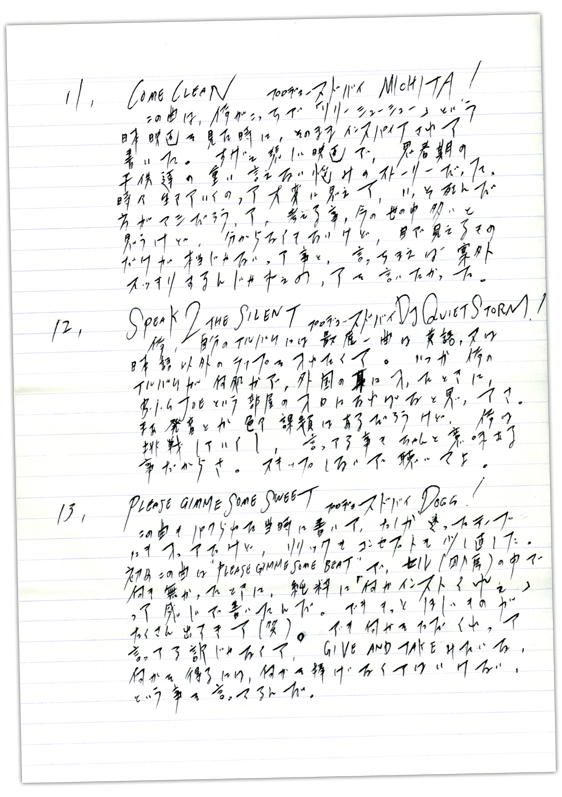 11, COME CLEAN プロデュースドバイ MICHITA!
この曲は、俺がこっちで「リリーシュシュ」という
日本映画を見た時に、そのままインスパイアされて
書いた。すげえ悲しい映画で、思春期の
子供達の重い言えない悩みのストーリーだった。
時々生きているのって大変に思えて、いっそ死んだ
方がマシだろう、って考える事、今の世の中多いと
思うけど、分からなくてもないけど、目で見えるもの
だけが本当じゃないって事と、言っちまえば案外
スッキリするんじゃねえの、って言いたかった。
12, SPEAK 2 THE SILENT プロデュースドバイ DJ QUIETSTORM!
俺、自分のアルバムには最低一曲は英語、又は
日本語以外のラップを入れたくて。いつか俺の
アルバムが何かで、外国の耳に入ったときに、
B.I.G JOEという部屋の入口になればなと思ってさ。
発音とか色々課題はあるだろうけど、俺は
挑戦していくし、言ってる事もちゃんと意味ある
事だからさ。スキップしないで聴いてよ。
13, PLEASE GIMME SOME SWEET プロデュースドバイ DOGG!
この曲もパクられた当時に書いて、
だけど、リリックもコンセプトも少し直した。
この曲は"PLEASE GIMME SOME BEAT"で、セル(独房)の中で
何も無かったときに、純粋に「何かインストくれぇ」
って感じで書いたんだ。でももっとほしいものが
たくさん出てきて(笑)。でも何かをただくれって
言ってる訳じゃなくて、GIVE AND TAKEみたいな、
何かを得るには、何かを捧げなくてはいけない、
という事を言ってるんだ。